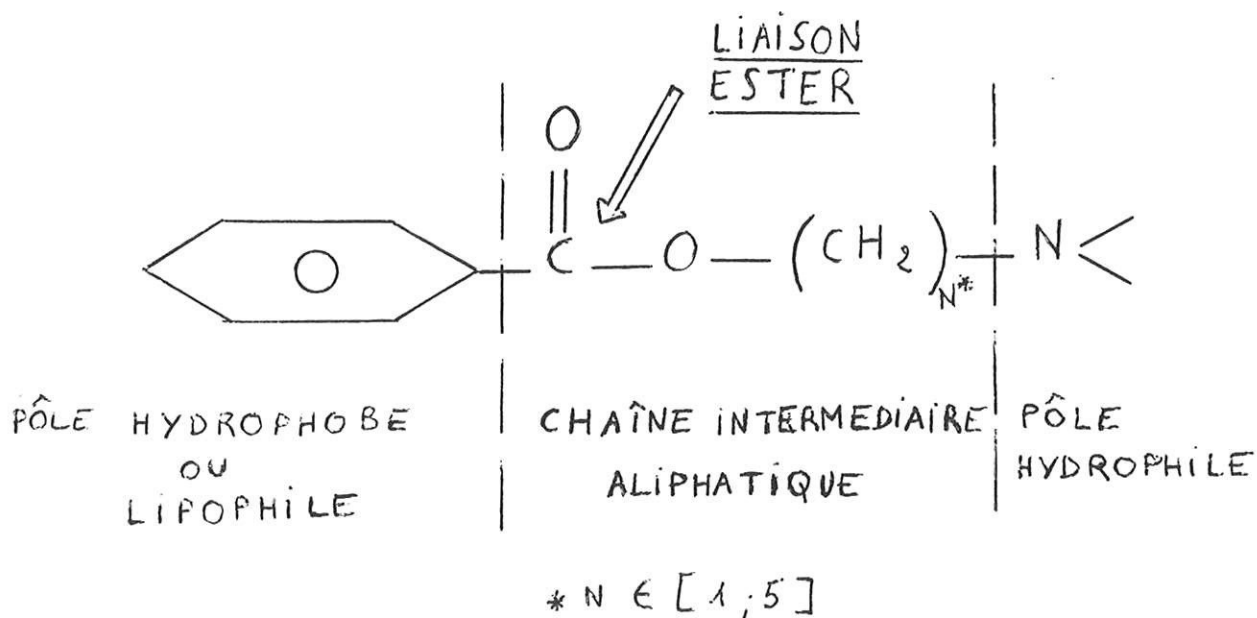 LIAISON
ESTER
O
C — O — (CH₂)N* — N
PÔLE HYDROPHOBE
OU
LIPOPHILE
CHAÎNE INTERMEDIAIRE
ALIPHATIQUE
PÔLE
HYDROPHILE
* N ∈ [1;5]